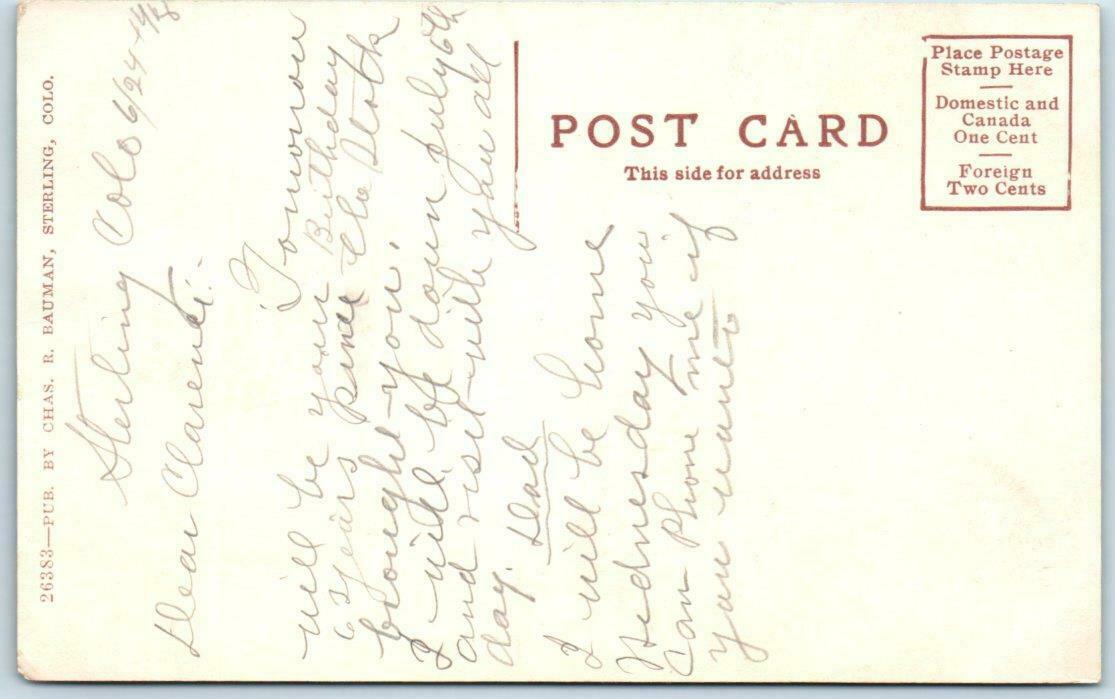 26383—PUB. BY CHAS. R. BAUMAN, STERLING, COLO.
Sterling Colo 6/24
Dear Clarence:-
Tomorrow
will be your Birthday
6 years since the Stork
brought you.
I will be down July 6th
and visit with you all
day.
Dad
I will be home
Wednesday you
can Phone me if
you want to
POST CARD
This side for address
Place Postage
Stamp Here
Domestic and
Canada
One Cent
Foreign
Two Cents